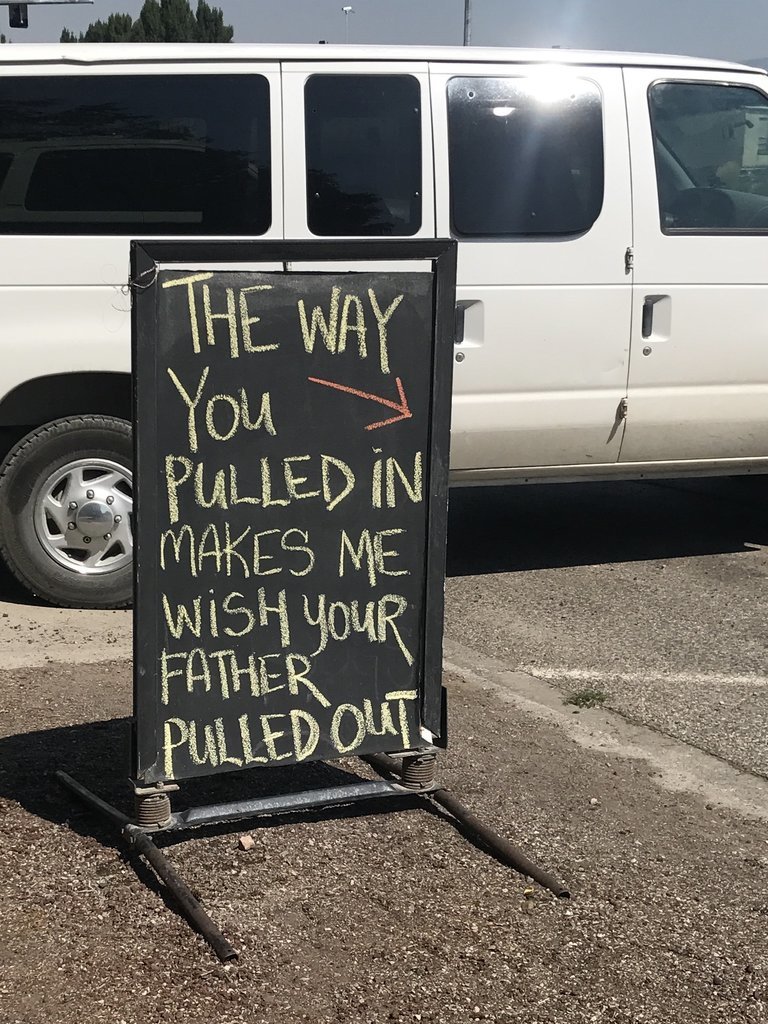 THE WAY
YOU
PULLED IN
MAKES ME
WISH YOUR
FATHER
PULLED OUT